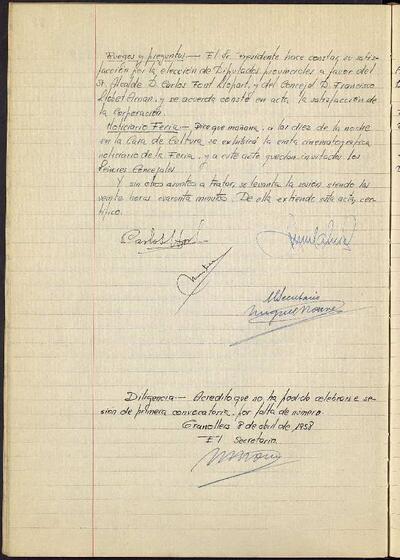 Ruegos y preguntas — El Sr. Presidente hace constar su satis-
facción por la elección de Diputados provinciales a favor del
Sr. Alcalde D. Carlos Font Llopart, y del Concejal D. Francisco
Llobet Arnan, y se acuerda conste en acta la satisfacción de
la Corporación.
Noticiario Feria — Dice que mañana, a las diez de la noche
en la Casa de Cultura se exhibirá la cinta cinematográfica
noticiario de la Feria, y a este acto quedan invitados los
Señores Concejales
Y sin otros asuntos a tratar, se levanta la sesión siendo las
veinte horas cuarenta minutos. De ella extiendo esta acta, cer-
tifico.
Carlos
El Secretario
Diligencia — Acredito que no ha podido celebrarse se-
sión de primera convocatoria, por falta de número.
Granollers 8 de abril de 1958
El Secretario